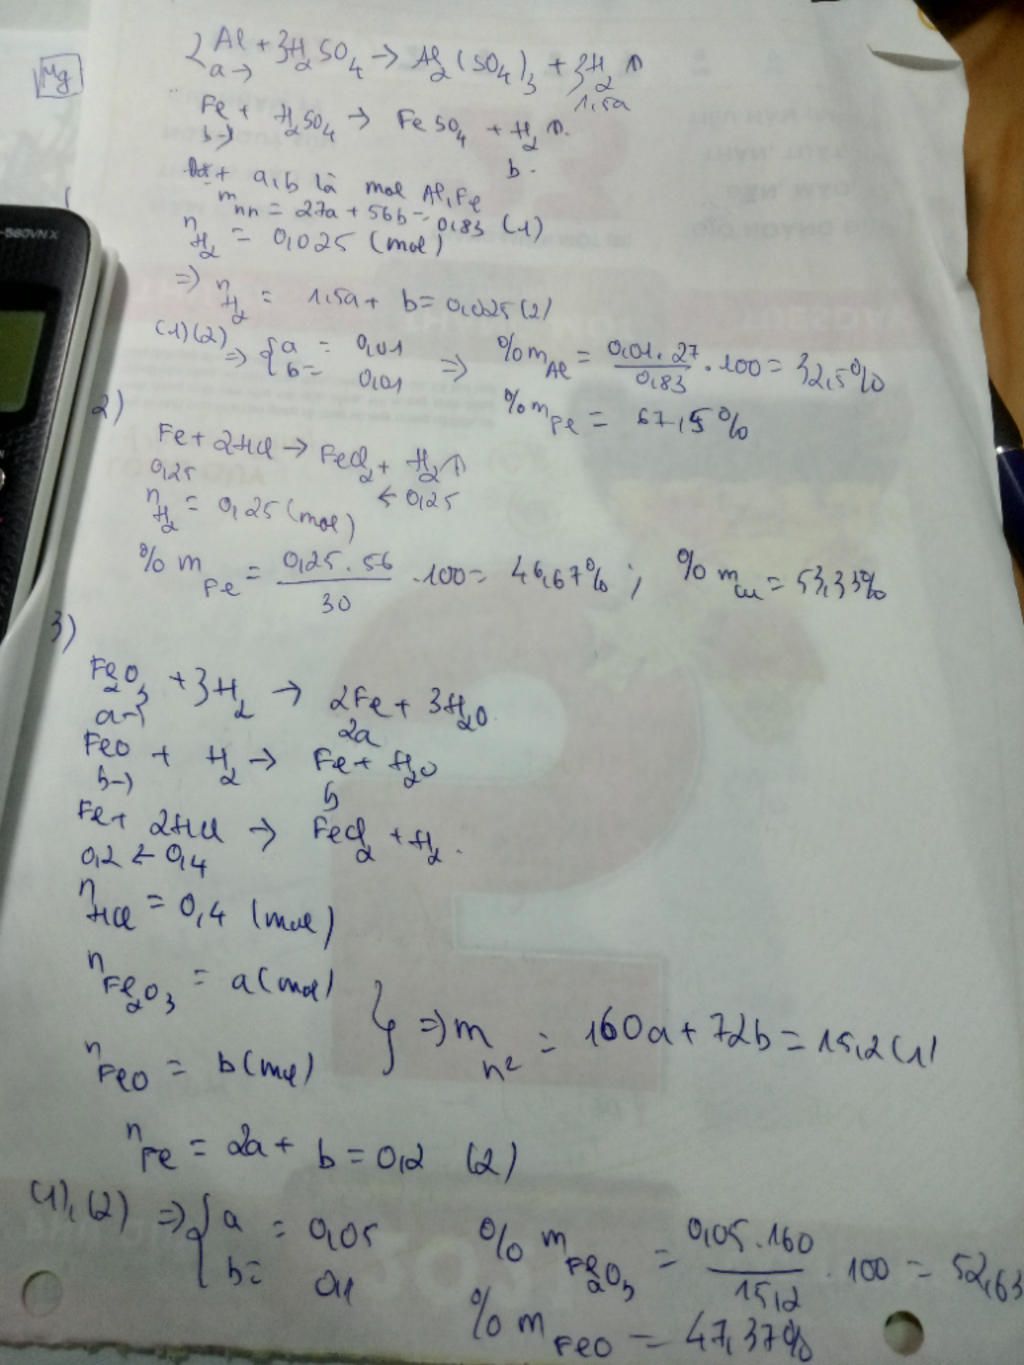 Mg
2Al + 3H2SO4 → Al2(SO4)3 + 3H2 ↑
a → 1,5a
Fe + H2SO4 → FeSO4 + H2 ↑.
b → b.
Đặt a, b là mol Al, Fe
m hh = 27a + 56b = 0,83 (1)
n H2 = 0,025 (mol)
=> n H2 = 1,5a + b = 0,025 (2)
(1)(2) => { a = 0,01 => %m Al = 0,01.27/0,83 . 100 = 32,5%
b = 0,01
%m Fe = 67,5%
2)
Fe + 2HCl → FeCl2 + H2 ↑
0,25 ← 0,25
n H2 = 0,25 (mol)
%m Fe = 0,25.56/30 .100 = 46,67% ; %m Cu = 53,33%
3)
Fe2O3 + 3H2 → 2Fe + 3H2O
a → 2a
FeO + H2 → Fe + H2O
b → b
Fe + 2HCl → FeCl2 + H2.
0,2 ← 0,4
n HCl = 0,4 (mol)
n Fe2O3 = a (mol)
} => m h2 = 160a + 72b = 15,2 (1)
n FeO = b (mol)
n Fe = 2a + b = 0,2 (2)
(1), (2) => { a = 0,05 % m Fe2O3 = 0,05.160/15,2 . 100 = 52,63
b = 0,1
% m FeO = 47,37%